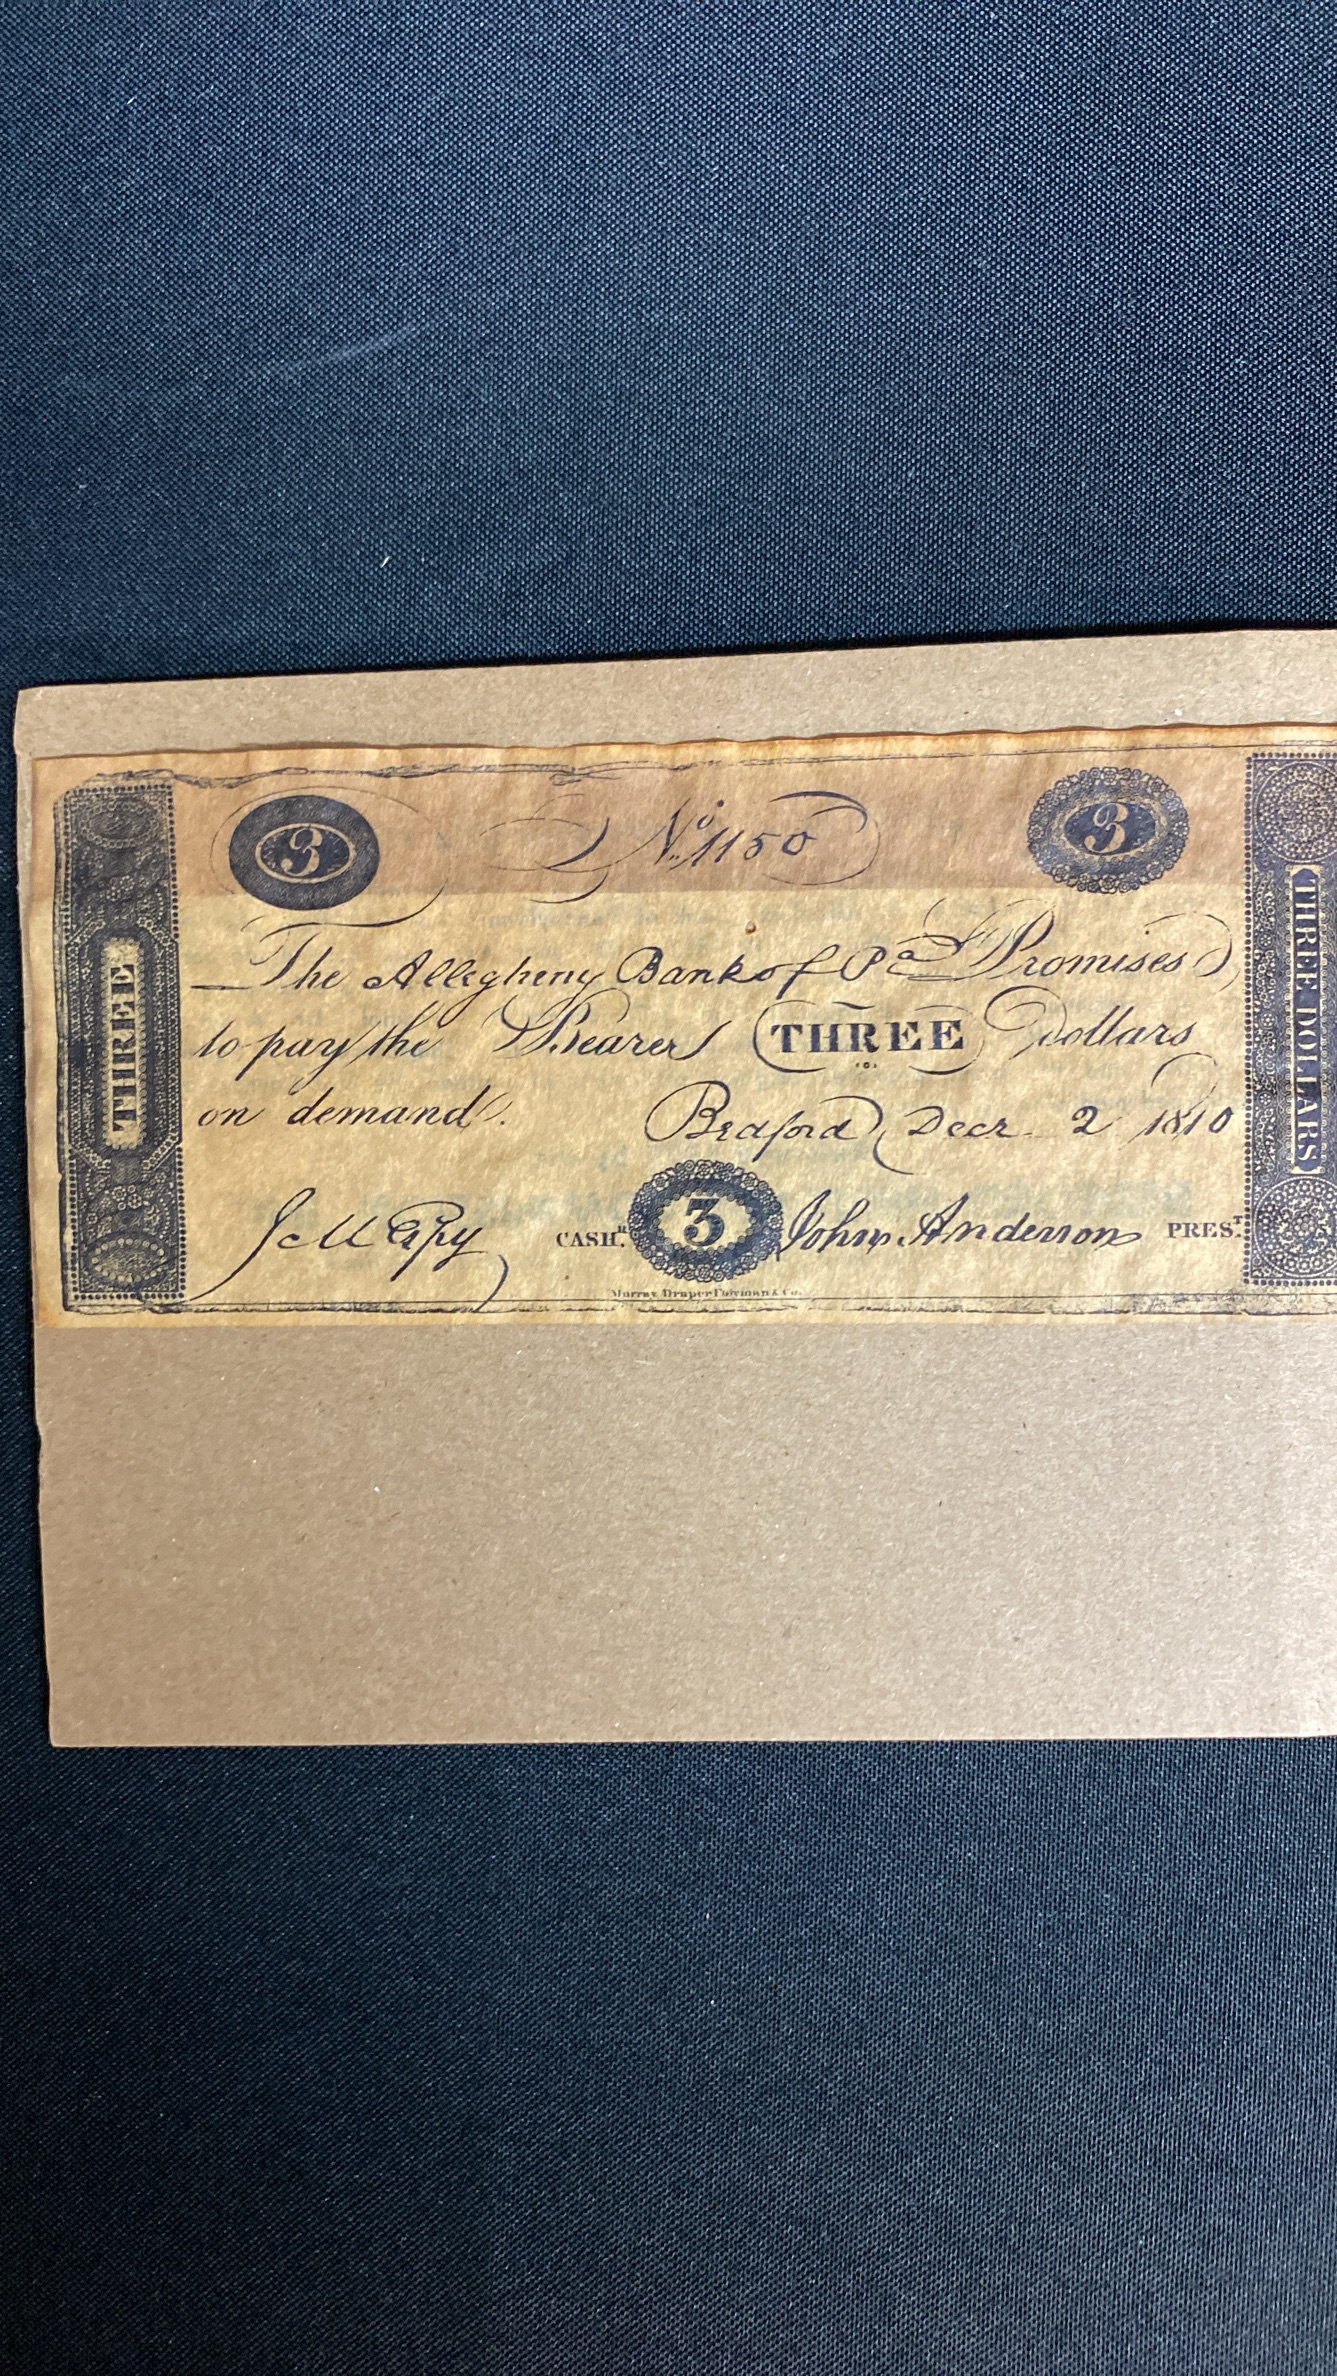 3 No 1150 3
The Allegheny Bank of Pa Promises
to pay the Bearer THREE Dollars
on demand.
Bedford Decr 2 1810
CASHR. 3 John Anderson PREST.
Murray Draper Fairman & Co.
THREE
THREE DOLLARS